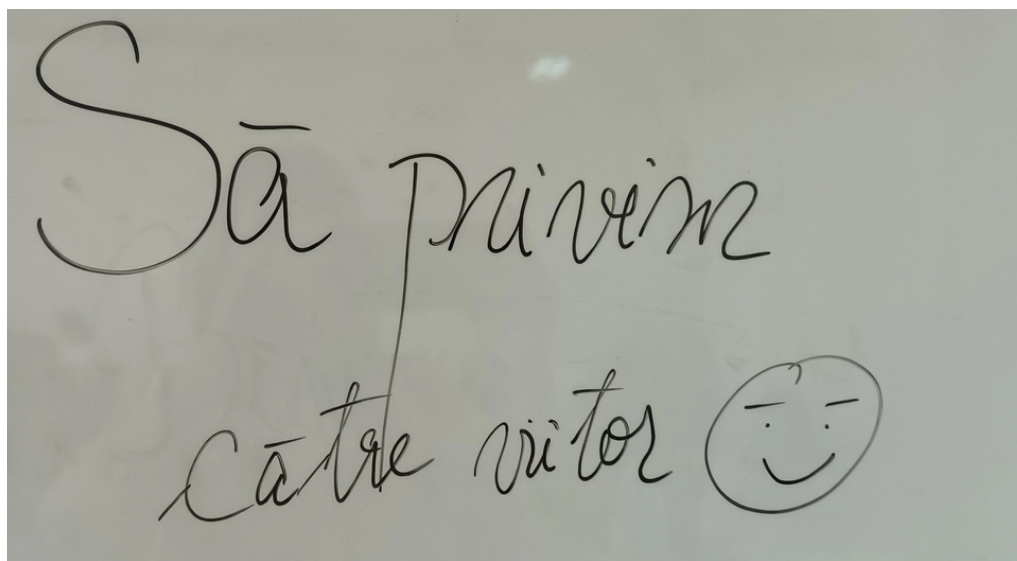 Să privim
către viitor